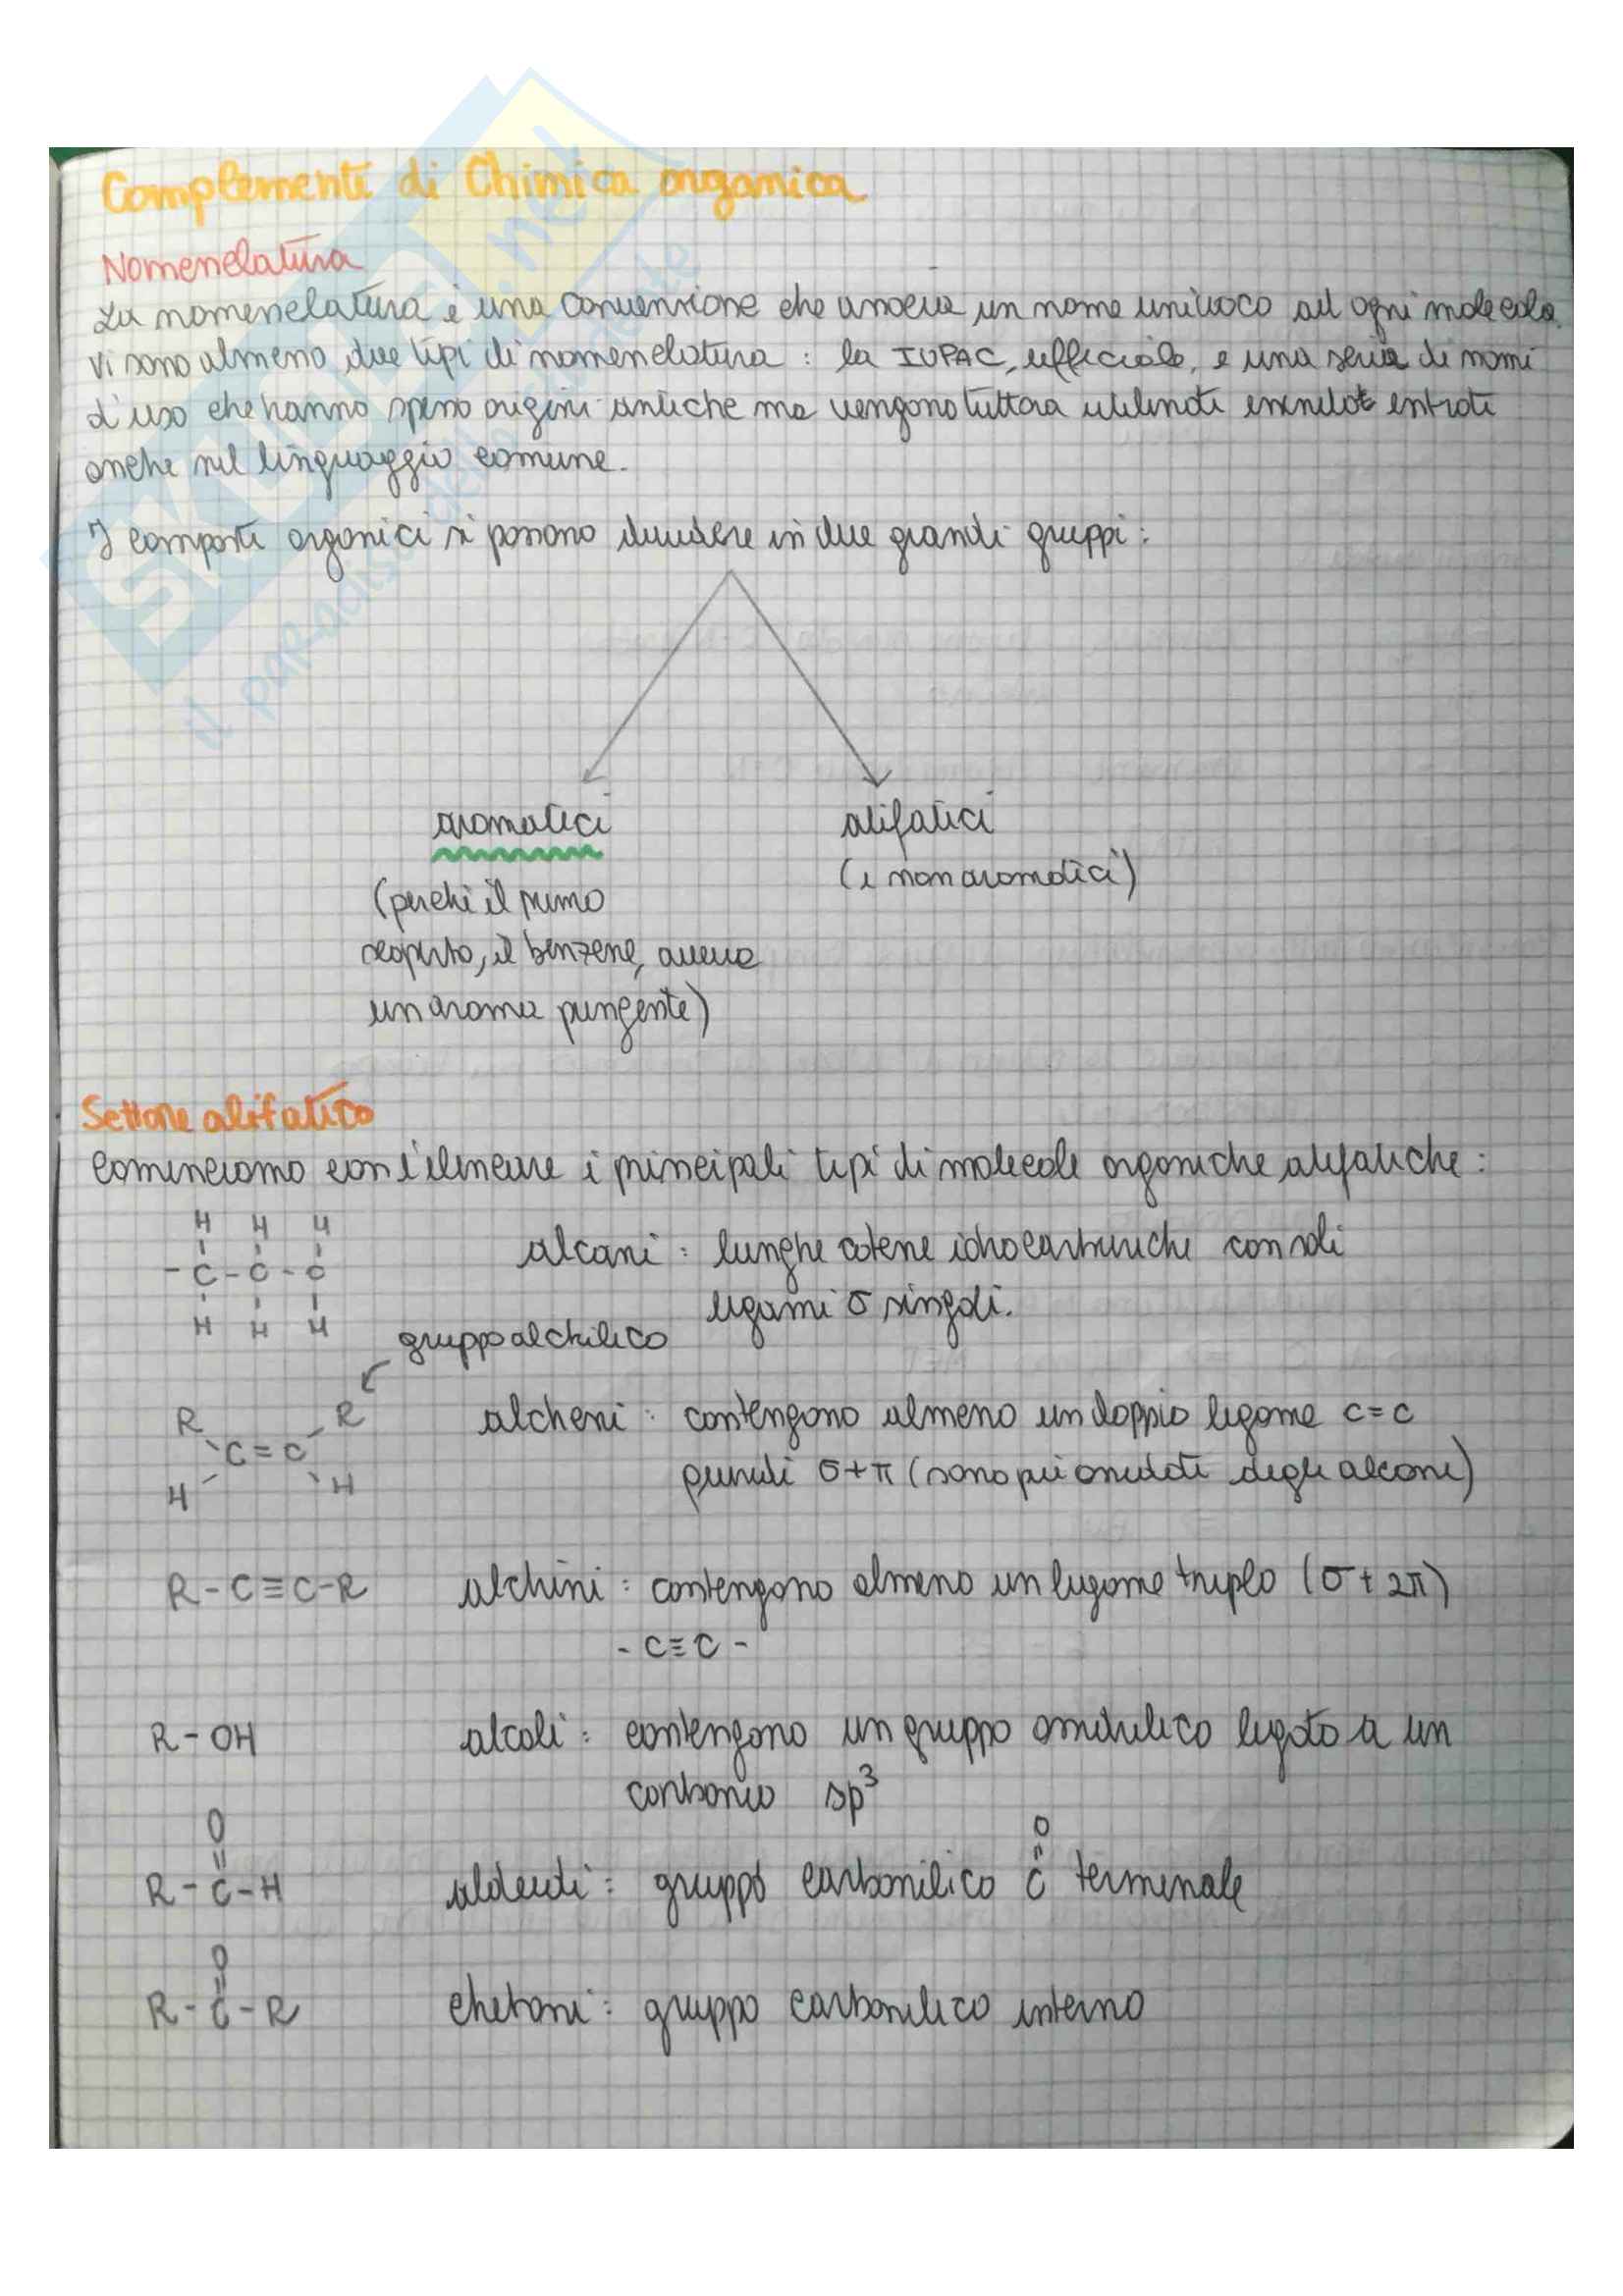 Complementi di Chimica organica
Nomenclatura
La nomenclatura è una convenzione che associa un nome univoco ad ogni molecola.
Vi sono almeno due tipi di nomenclatura : la IUPAC, ufficiale, e una serie di nomi
d'uso che hanno spesso origini antiche ma vengono tuttora utilizzati essendo entrati
anche nel linguaggio comune.
I composti organici si possono dividere in due grandi gruppi :
aromatici
alifatici
(i non aromatici)
(perché il primo
scoperto, il benzene, aveva
un aroma pungente)
Settore alifatico
Cominciamo con l'elencare i principali tipi di molecole organiche alifatiche :
H H H
- C - C - C
H H H
alcani : lunghe catene idrocarburiche con soli
legami σ singoli.
gruppo alchilico
R R
C = C
H H
alcheni : contengono almeno un doppio legame C=C
quindi σ+π (sono più ossidati degli alcani)
R - C ≡ C - R
alchini : contengono almeno un legame triplo (σ + 2π)
- C ≡ C -
R - OH
alcoli : contengono un gruppo ossidrilico legato a un
carbonio sp³
O
R - C - H
aldeidi : gruppo carbonilico C terminale
O
O
R - C - R
chetoni : gruppo carbonilico interno
SKUOLA.net
il paradiso dello studente